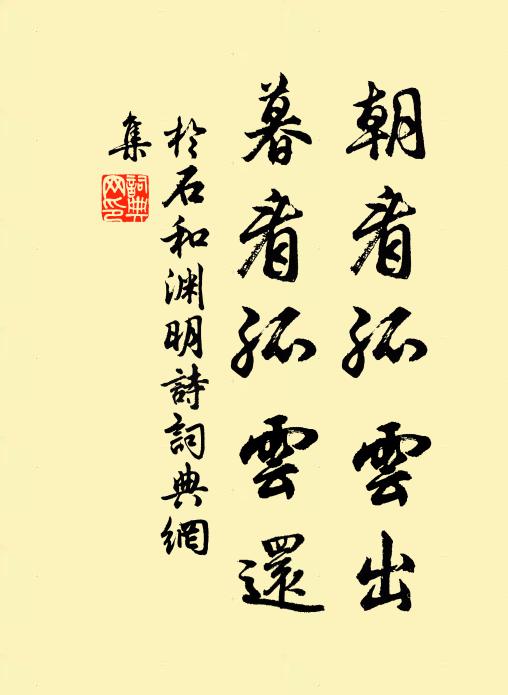 朝看孤雲出
暮看孤雲還
於石和淵明詩詞典網
集
詞典网印